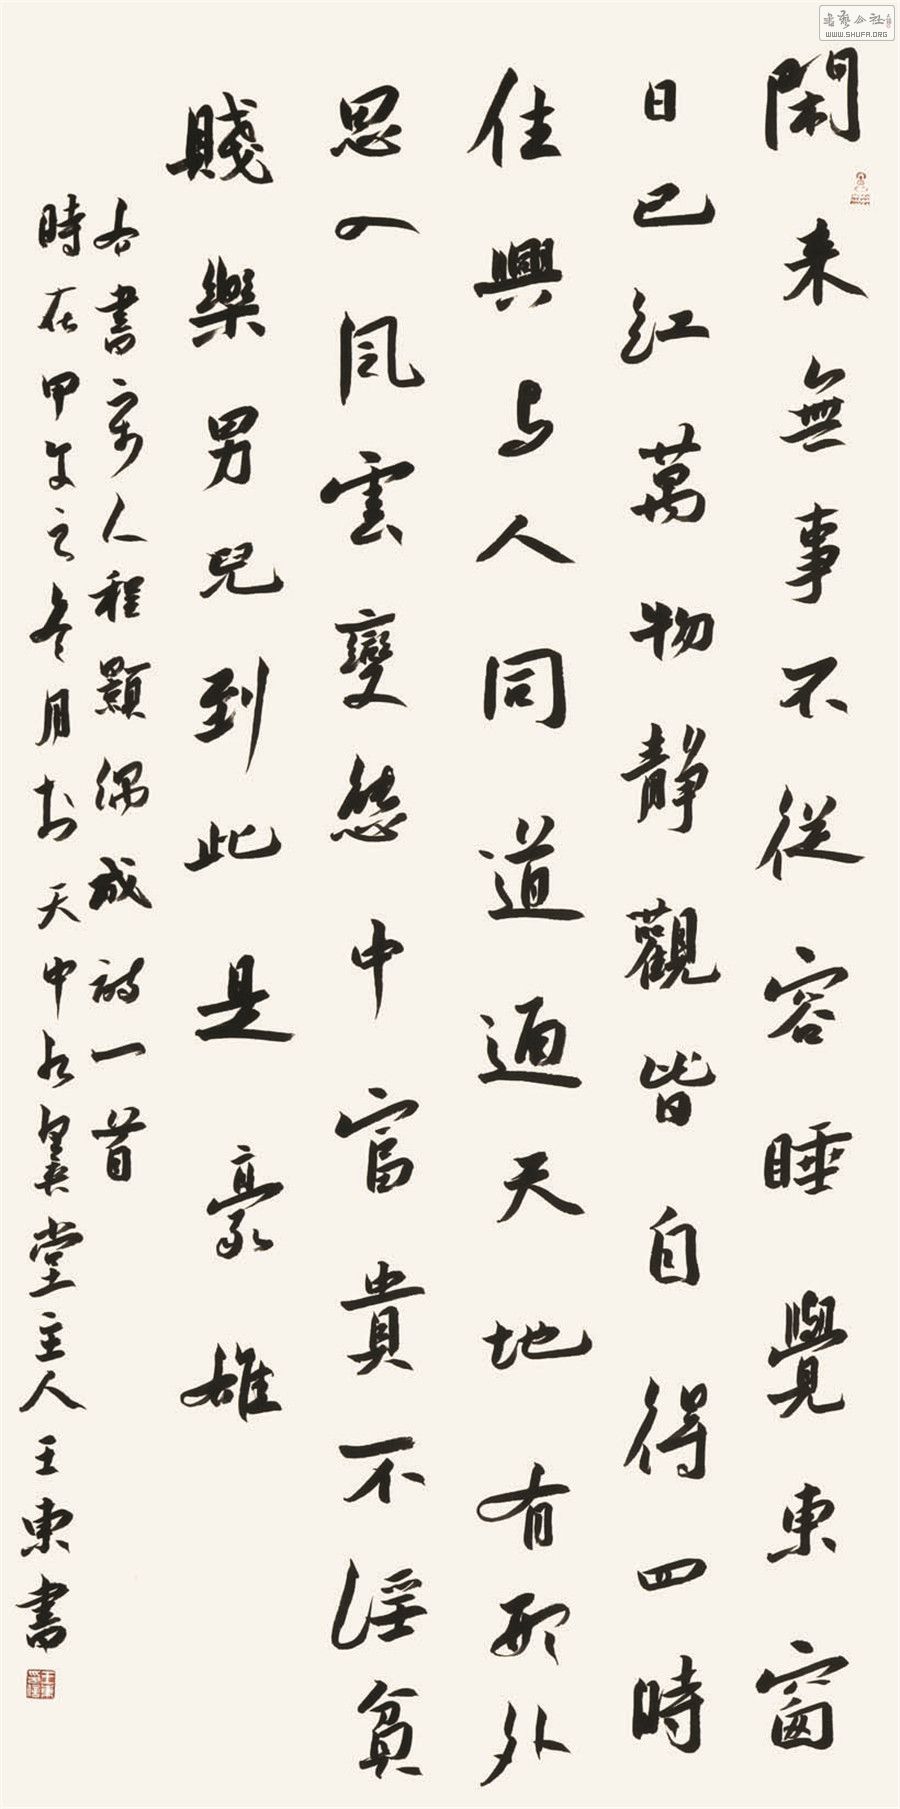 閑来無事不從容睡覺東窗
日已紅萬物靜觀皆自得四時
佳興与人同道通天地有形外
思入風雲變態中富貴不淫貧
賤樂男兒到此是豪雄
右書宋人程顥偶成詩一首
時在甲午之冬月於天中堂主人王東書
书艺公社
WWW.SHUFA.ORG